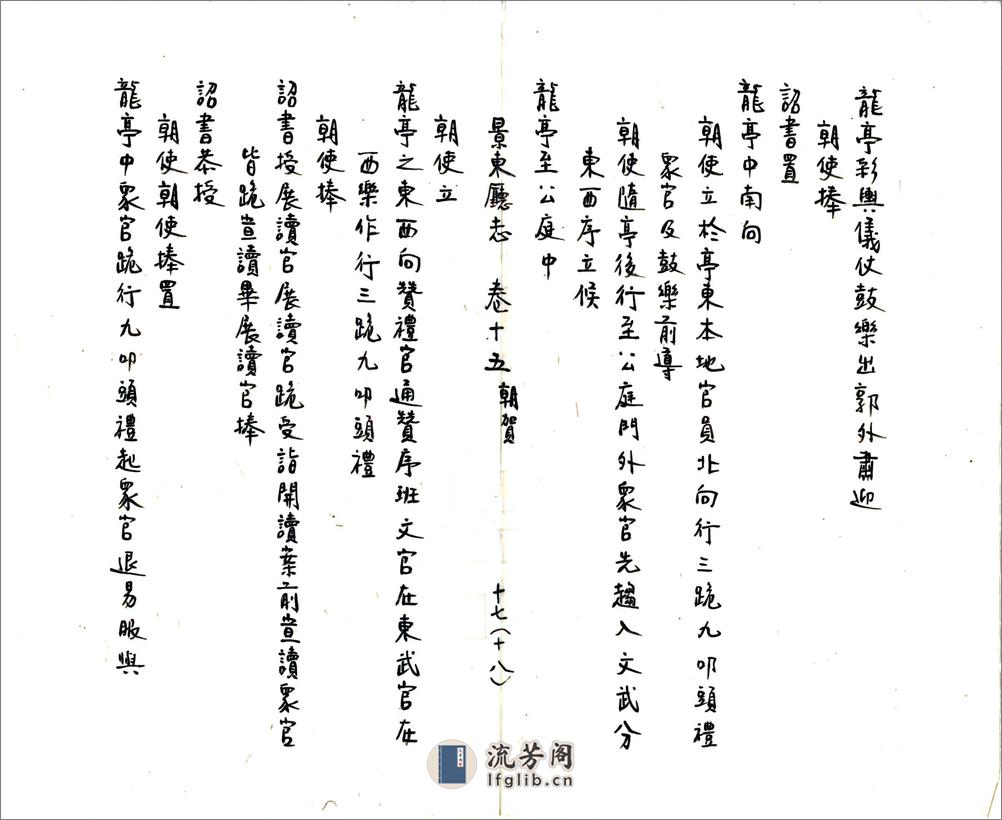 龍亭彩輿儀仗鼓樂出郭外肅迎
朝使捧
詔書置
龍亭中南向
朝使立於亭東本地官員北向行三跪九叩頭禮
衆官及鼓樂前導
朝使隨亭後行至公庭門外衆官先趨入文武分
東西序立候
龍亭至公庭中
景東廳志 卷十五 朝賀 十七（十八）
朝使立
龍亭之東西向贊禮官通贊序班文官在東武官在
西樂作行三跪九叩頭禮
朝使捧
詔書授展讀官展讀官跪受詣開讀案前宣讀衆官
皆跪宣讀畢展讀官捧
詔書恭授
朝使朝使捧置
龍亭中衆官跪行九叩頭禮起衆官退易服與
流芳阁
lfglib.cn